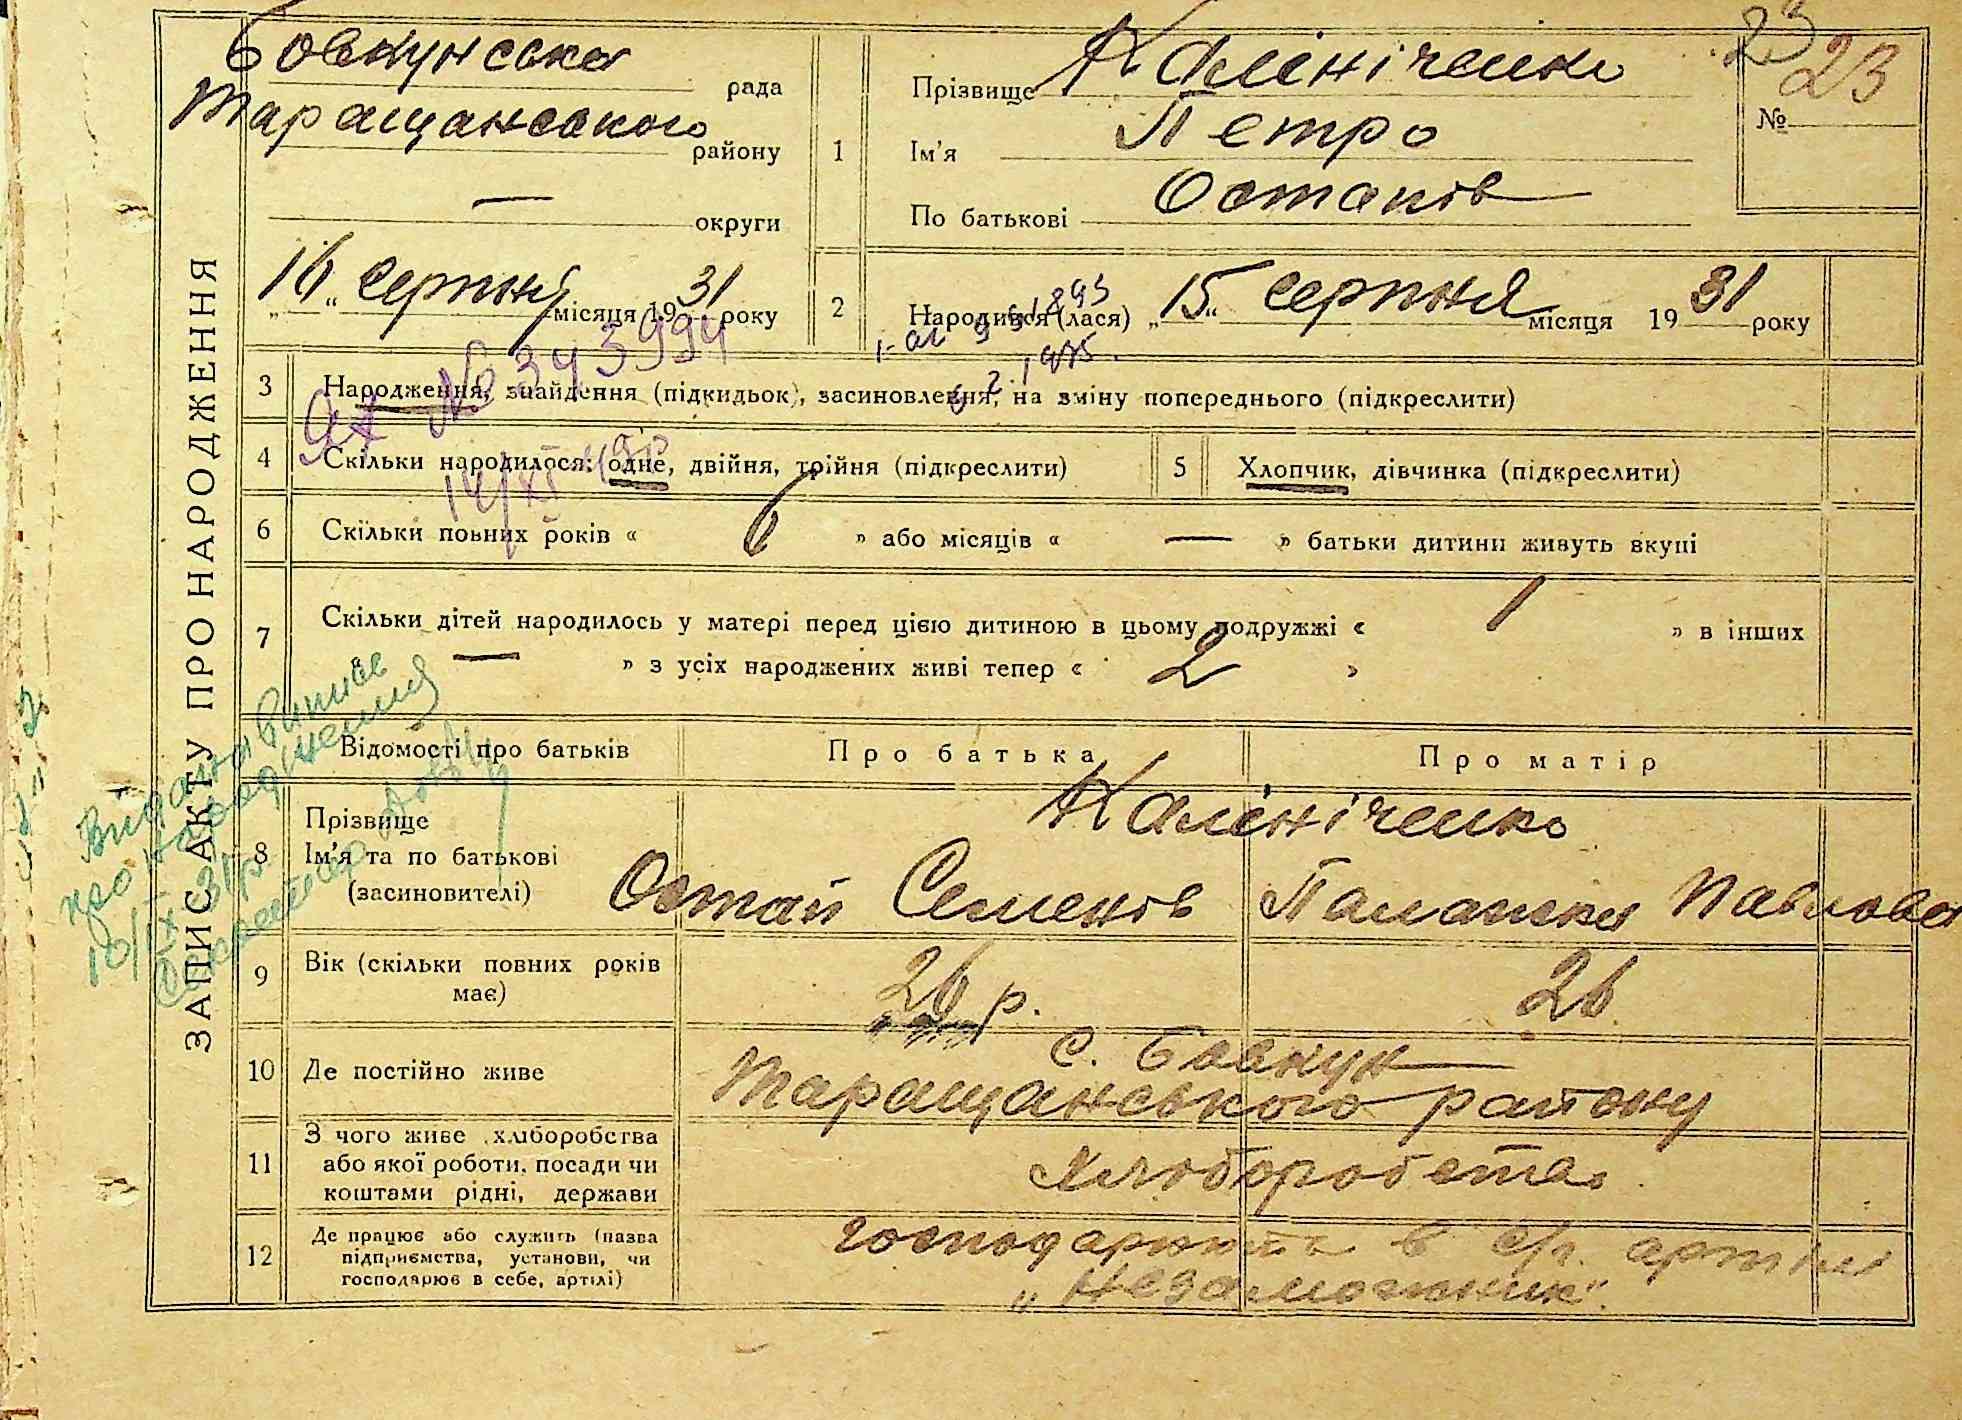 ЗАПИС АКТУ ПРО НАРОДЖЕННЯ
Бовкунська рада
Таращанського району
— округи
„16“ серпня місяця 1931 року
1
Прізвище Калініченко
Ім'я Петро
По батькові Остапів
23
№ 23
2
Народився (лася) „15“ серпня місяця 1931 року
№ 343994
1975
3
Народження, знайдення (підкидьок), засиновлення, на зміну попереднього (підкреслити)
4
Скільки народилося: одне, двійня, трійня (підкреслити)
5
Хлопчик, дівчинка (підкреслити)
6
Скільки повних років « 6 » або місяців « — » батьки дитини живуть вкупі
7
Скільки дітей народилось у матері перед цією дитиною в цьому подружжі « 1 » в інших
— » з усіх народжених живі тепер « 2 »
Відомості про батьків
Про батька
Про матір
8
Прізвище
Ім'я та по батькові
(засиновителі)
Калініченко
Остап Семенів
Палажка Павлова
9
Вік (скільки повних років
має)
26 р.
26
10
Де постійно живе
с. Бовкун
Таращанського району
11
З чого живе, хліборобства
або якої роботи, посади чи
коштами рідні, держави
хліоборобства
12
Де працює або служить (назва
підприємства, установи, чи
господарює в себе, артілі)
господарюють в с/г. артілі
„Незаможник“.
Видана випись
про народження
10/IX 31р.
Секретар